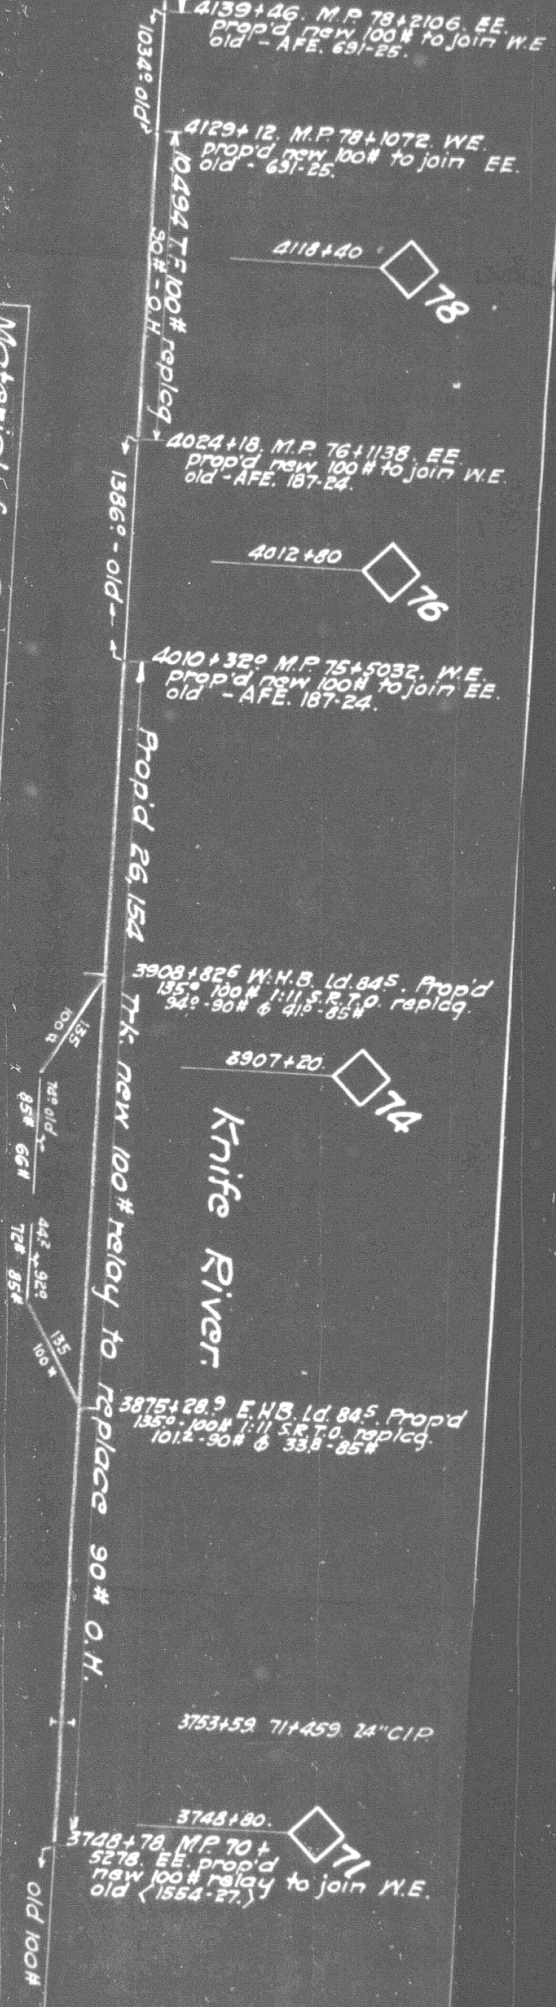 4139+46. M.P. 78+2106. EE.
prop'd new 100# to join W.E
old - AFE. 691-25.
1034⁰ old
4129+12. M.P. 78+1072. WE.
prop'd new 100# to join EE.
old - 691-25.
10,494 T.F. 100# replcg
90# - O.H.
4118+40
78
4024+18. M.P. 76+1138. EE.
prop'd new 100# to join W.E.
old - AFE. 187-24.
1386⁰ - old
4012+80
76
4010+32⁰ M.P. 75+5032. W.E.
prop'd new 100# to join EE.
old - AFE. 187-24.
Prop'd 26,154 T.F. new 100# relay to replace 90# O.H.
3908+82⁶ W.H.B. Ld. 84⁵. Prop'd
135⁰ 100# 1:11 S.R.T.O. replcg.
94⁰-90# & 41⁰-85#
135
100#
3907+20.
74
78⁰ old
85# 66#
Knife River.
44² 92⁰
72# 85#
135
100#
3875+28.⁹ E.H.B. Ld. 84⁵. Prop'd
135⁰-100# 1:11 S.R.T.O. replcg.
101.2-90# & 33.8-85#
3753+59. 71+459. 24" C.I.P.
3748+80.
71
3748+78. M.P. 70+
5278. EE. prop'd
new 100# relay to join W.E.
old (1554-27.)
old 100#